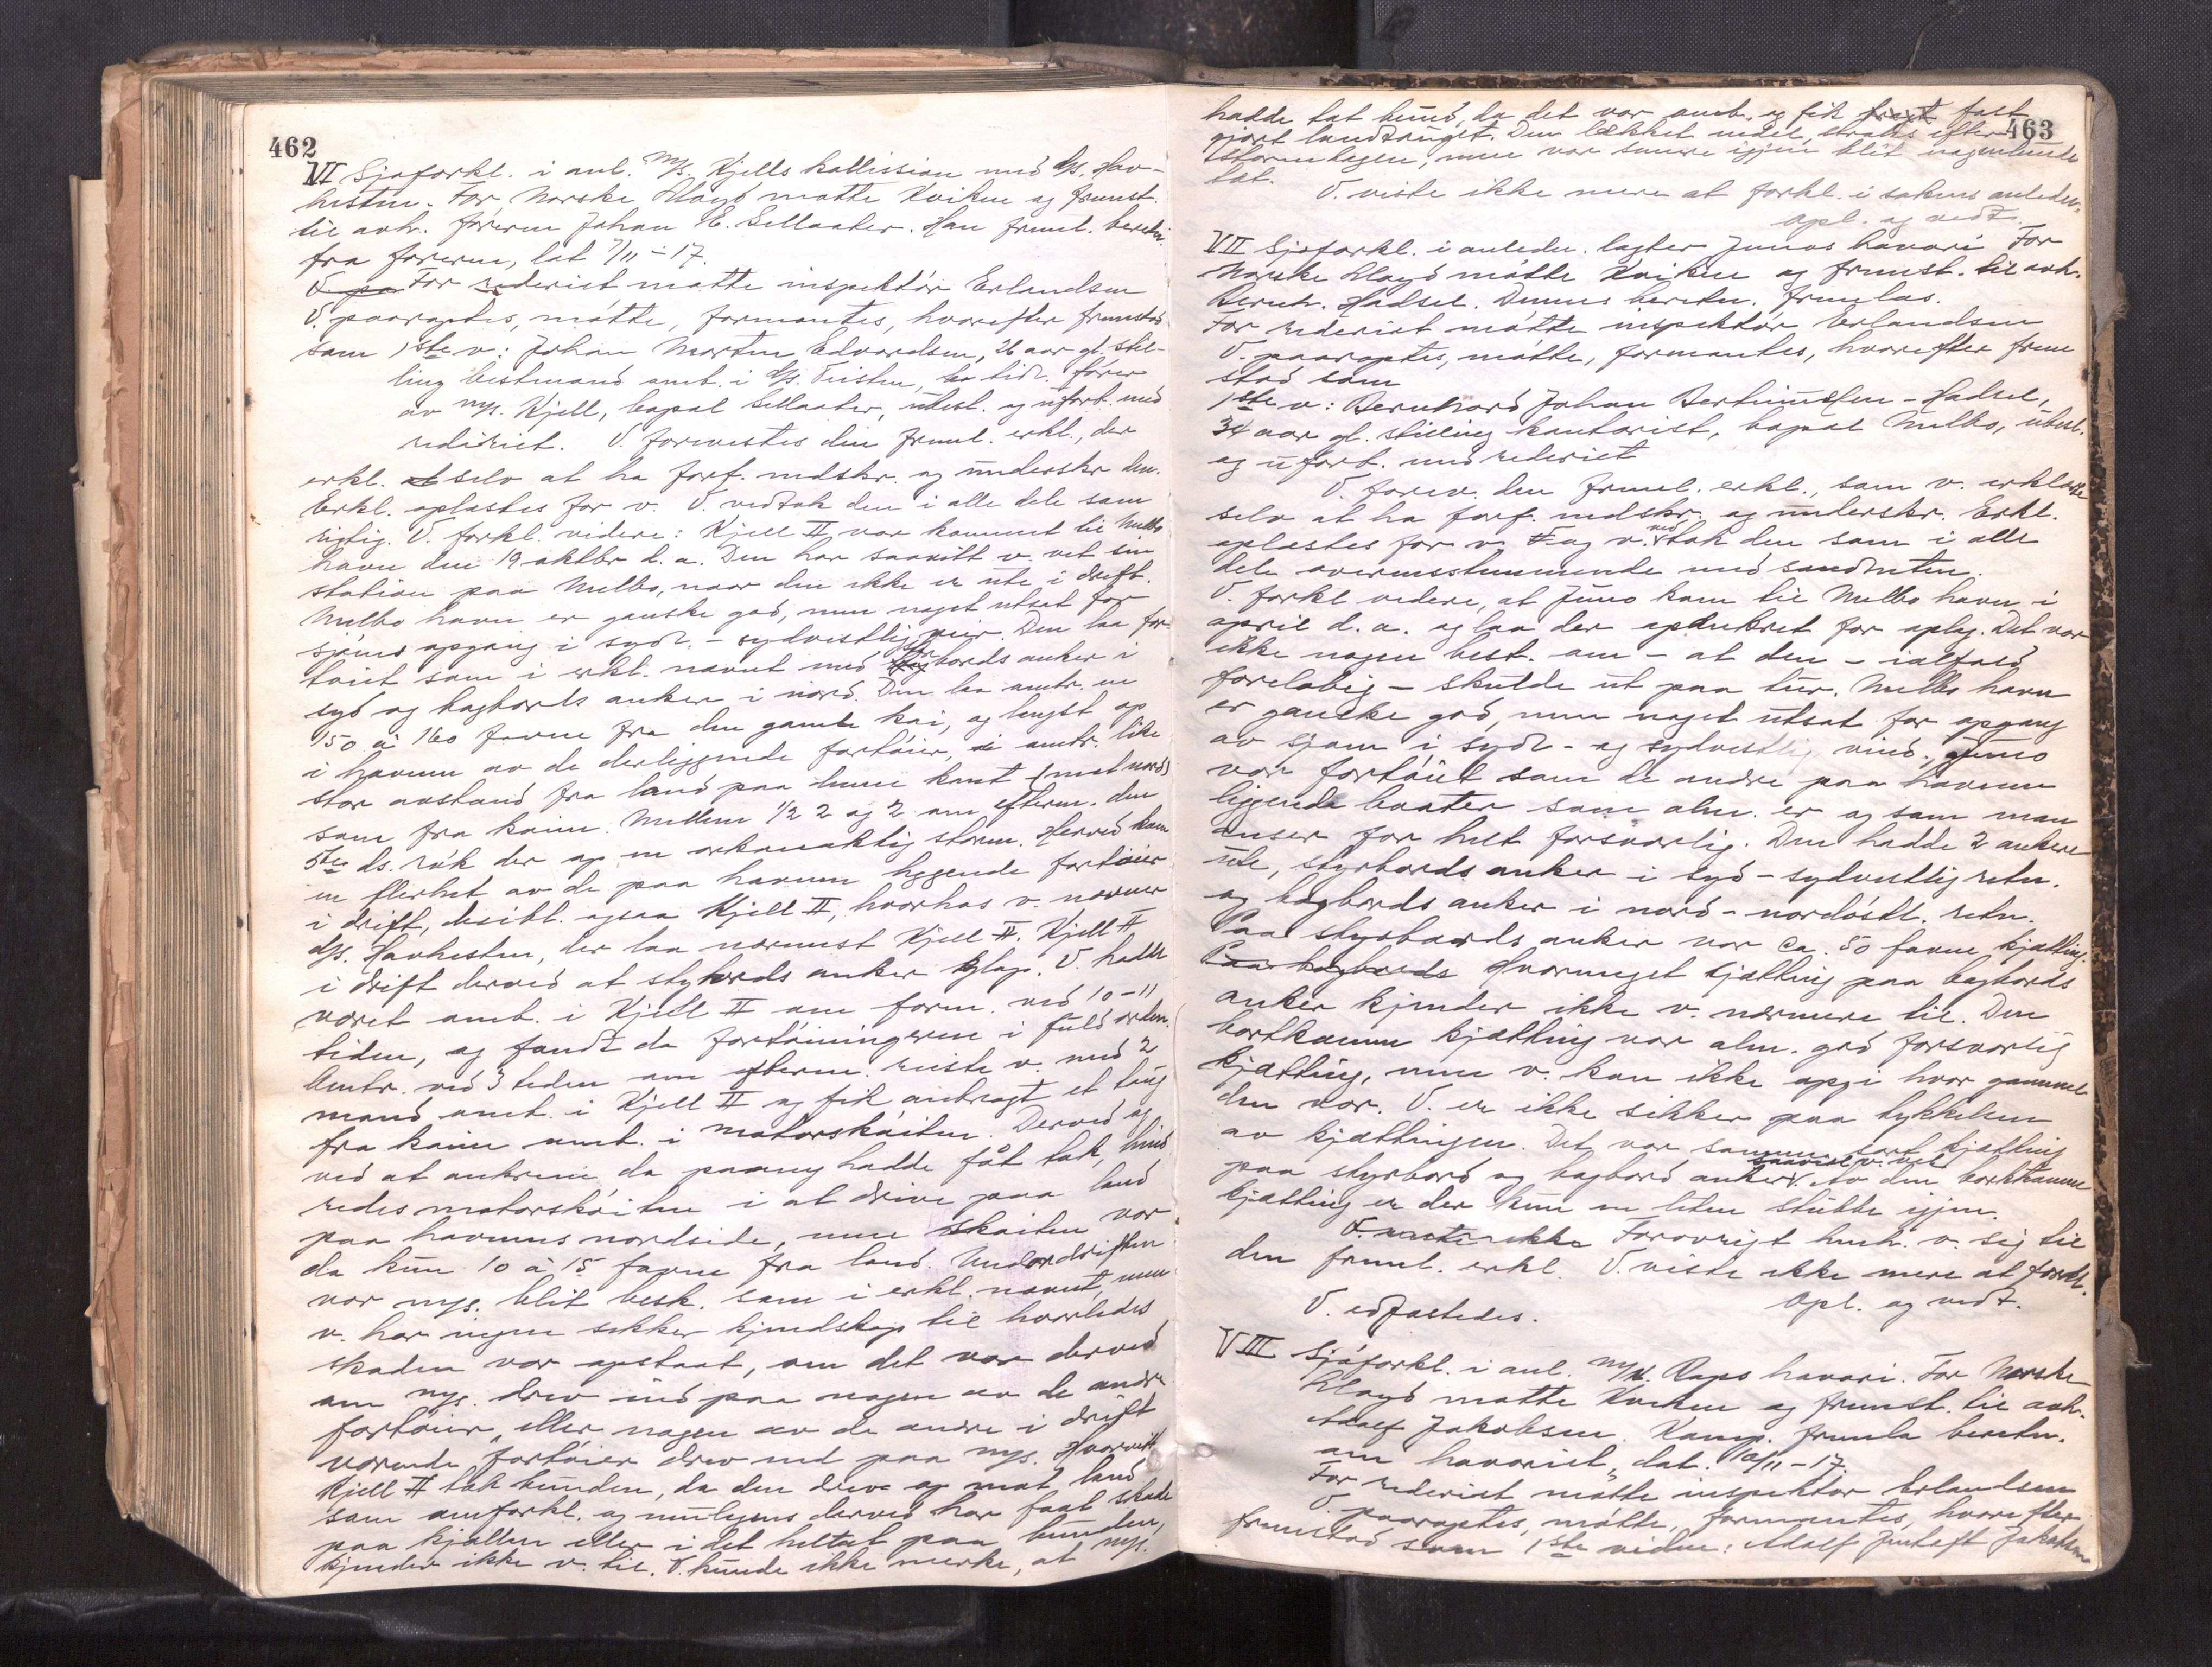 462
VI Sjøforkl. i anl. m/s. Kjells kollission med d/s. Hav-
hesten. For Norske Lloyd møtte Kviken og fremst.
til avh. føreren Johan E. Sellaater. Han freml. beretn.
fra føreren, dat 7/11-17.
For rederiet møtte inspektør Erlandsen
V. paaroptes, møtte, formantes, hvorefter fremstod
som 1ste v: Johan Morten Edvardsen, 26 aar gl. stil-
ling bestmand omb. i d/s. Teisten, tidl. fører
av m/s. Kjell, bopæl Sellaater, ubesl. og uforb. med
rederiet. V. forevistes den freml. erkl., der
erkl. selv at ha forf. nedskr. og underskr den.
Erkl. oplæstes for v. V. vedtok den i alle dele som
rigtig. V. forkl. videre: Kjell II var kommet til Melbo
havn den 19 oktbr d. a. Den har saavitt v. vet sin
station paa Melbo, naar den ikke er ute i drift.
Melbo havn er ganske god, men noget utsat for
sjøens opgang i sydl. - sydvestlig veir. Den laa for-
tøiet som i erkl. nævnt med styrbords anker i
syd og bagbords anker i nord. Den laa omtr. en
150 à 160 favne fra den gamle kai, og lengst op
i havnen av de derliggende fartøier, i omtr. like
stor avstand fra land paa denne kant (mot nord)
som fra kaien. Mellem 1/2 2 og 2 om efterm. den
5te ds. røk der op en orkanaktig storm. Herved kom
en flerhet av de paa havnen liggende fartøier
i drift, desibl. ogsaa Kjell II, hvorhos v. nævner
d/s. Havhesten, der laa nærmest Kjell II. Kjell II
i drift derved at styrbords anker glap. V. hadde
været omb. i Kjell II om form. ved 10-11
tiden, og fandt da fortøiningerne i fuld orden.
Omtr. ved 3 tiden om efterm. reiste v. med 2
mand omb. i Kjell II og fik anbragt et taug
fra kaien omb. i motorskøiten. Derved og
ved at ankrene da paany hadde fåt tak, hind
redes motorskøiten i at drive paa land
paa havnens nordside, men skøiten var
da kun 10 à 15 favne fra land. Under driften
var m/s. blit besk. som i erkl. nævnt, men
v. har ingen sikker kjendskap til hvorledes
skaden var opstaat, om det var derved
om m/s. drev ind paa nogen av de andre
fartøier, eller nogen av de andre i drift
værende fartøier drev ned paa m/s. Hvorvidt
Kjell II tok bunden, da den drev op mot land
som omforkl. og muligens derved har faat skade
paa kjølen eller i det heltat paa bunden,
kjender ikke v. til. V. kunde ikke merke, at m/s.
463
hadde tat bund, da det var omb. og fik fast
gjort landtauget. Den lækket endel straks efter
stormdagen, men var senere igjen blit nogenlunde
tæt.
V. viste ikke mere at forkl. i sakens anledn.
Opl. og vedt.
VII Sjøforkl. i anledn. lægter Junos havari For
Norske Lloyd møtte Kviken og fremst. til avh.
Bernh. Hadsel. Dennes beretn. fremlas.
For rederiet møtte inspektør Erlandsen
V. paaroptes, møtte, formantes, hvorefter frem
stod som
1ste v: Bernhard Johan Bertheussen-Hadsel,
34 aar gl. stilling kontorist, bopæl Melbo, ubesl.
og uforb. med rederiet
V. forev. den freml. erkl., som v. erklærte
selv at ha forf. nedskr. og underskr. Erkl.
oplæstes for v. og v. vedtok den som i alle
dele overensstemmende med sandheten.
V. forkl videre, at Juno kom til Melbo havn i
april d. a. og laa der opankret for oplag. Det var
ikke nogen best. om - at den - ialfald
foreløbig - skulde ut paa tur. Melbo havn
er ganske god, men noget utsat for opgang
av sjøen i sydl- og sydvestlig vind. Juno
var fortøiet som de andre paa havnen
liggende baater som alm. er og som man
anser for helt forsvarlig. Den hadde 2 ankere
ute, styrbords anker i syd-sydvestlig retn.
og bagbords anker i nord-nordøstl. retn.
Paa styrbords anker var ca. 50 favne kjætting.
Paa bagbords Hvormeget kjætting paa bagbords
anker kjender ikke v. nærmere til. Den
bortkomne kjætting var alm. god forsvarlig
kjætting, men v. kan ikke opgi hvor gammel
den var. V. er ikke sikker paa tykkelsen
av kjættingen. Det var samme sort kjætting
paa styrbord og bagbord anker saavidt v. vet. Av den bortkomne
kjætting er der kun en liten stubbe igjen.
V. viste ikke Forøvrigt henh. v. sig til
den freml. erkl. V. viste ikke mere at forkl.
Opl. og vedt.
V. edfæstedes.
VIII Sjøforkl. i anl. m/k. Raps havari. For Norske
Lloyd møtte Kviken og fremst. til avh.
Adolf Jakobsen. Komp. fremla beretn.
om havariet, dat. 10/11-17.
For rederiet møtte inspektør Erlandsen
V. paaroptes, møtte, formantes, hvorefter
fremstod som 1ste vidne: Adolf Jentoft Jakobsen